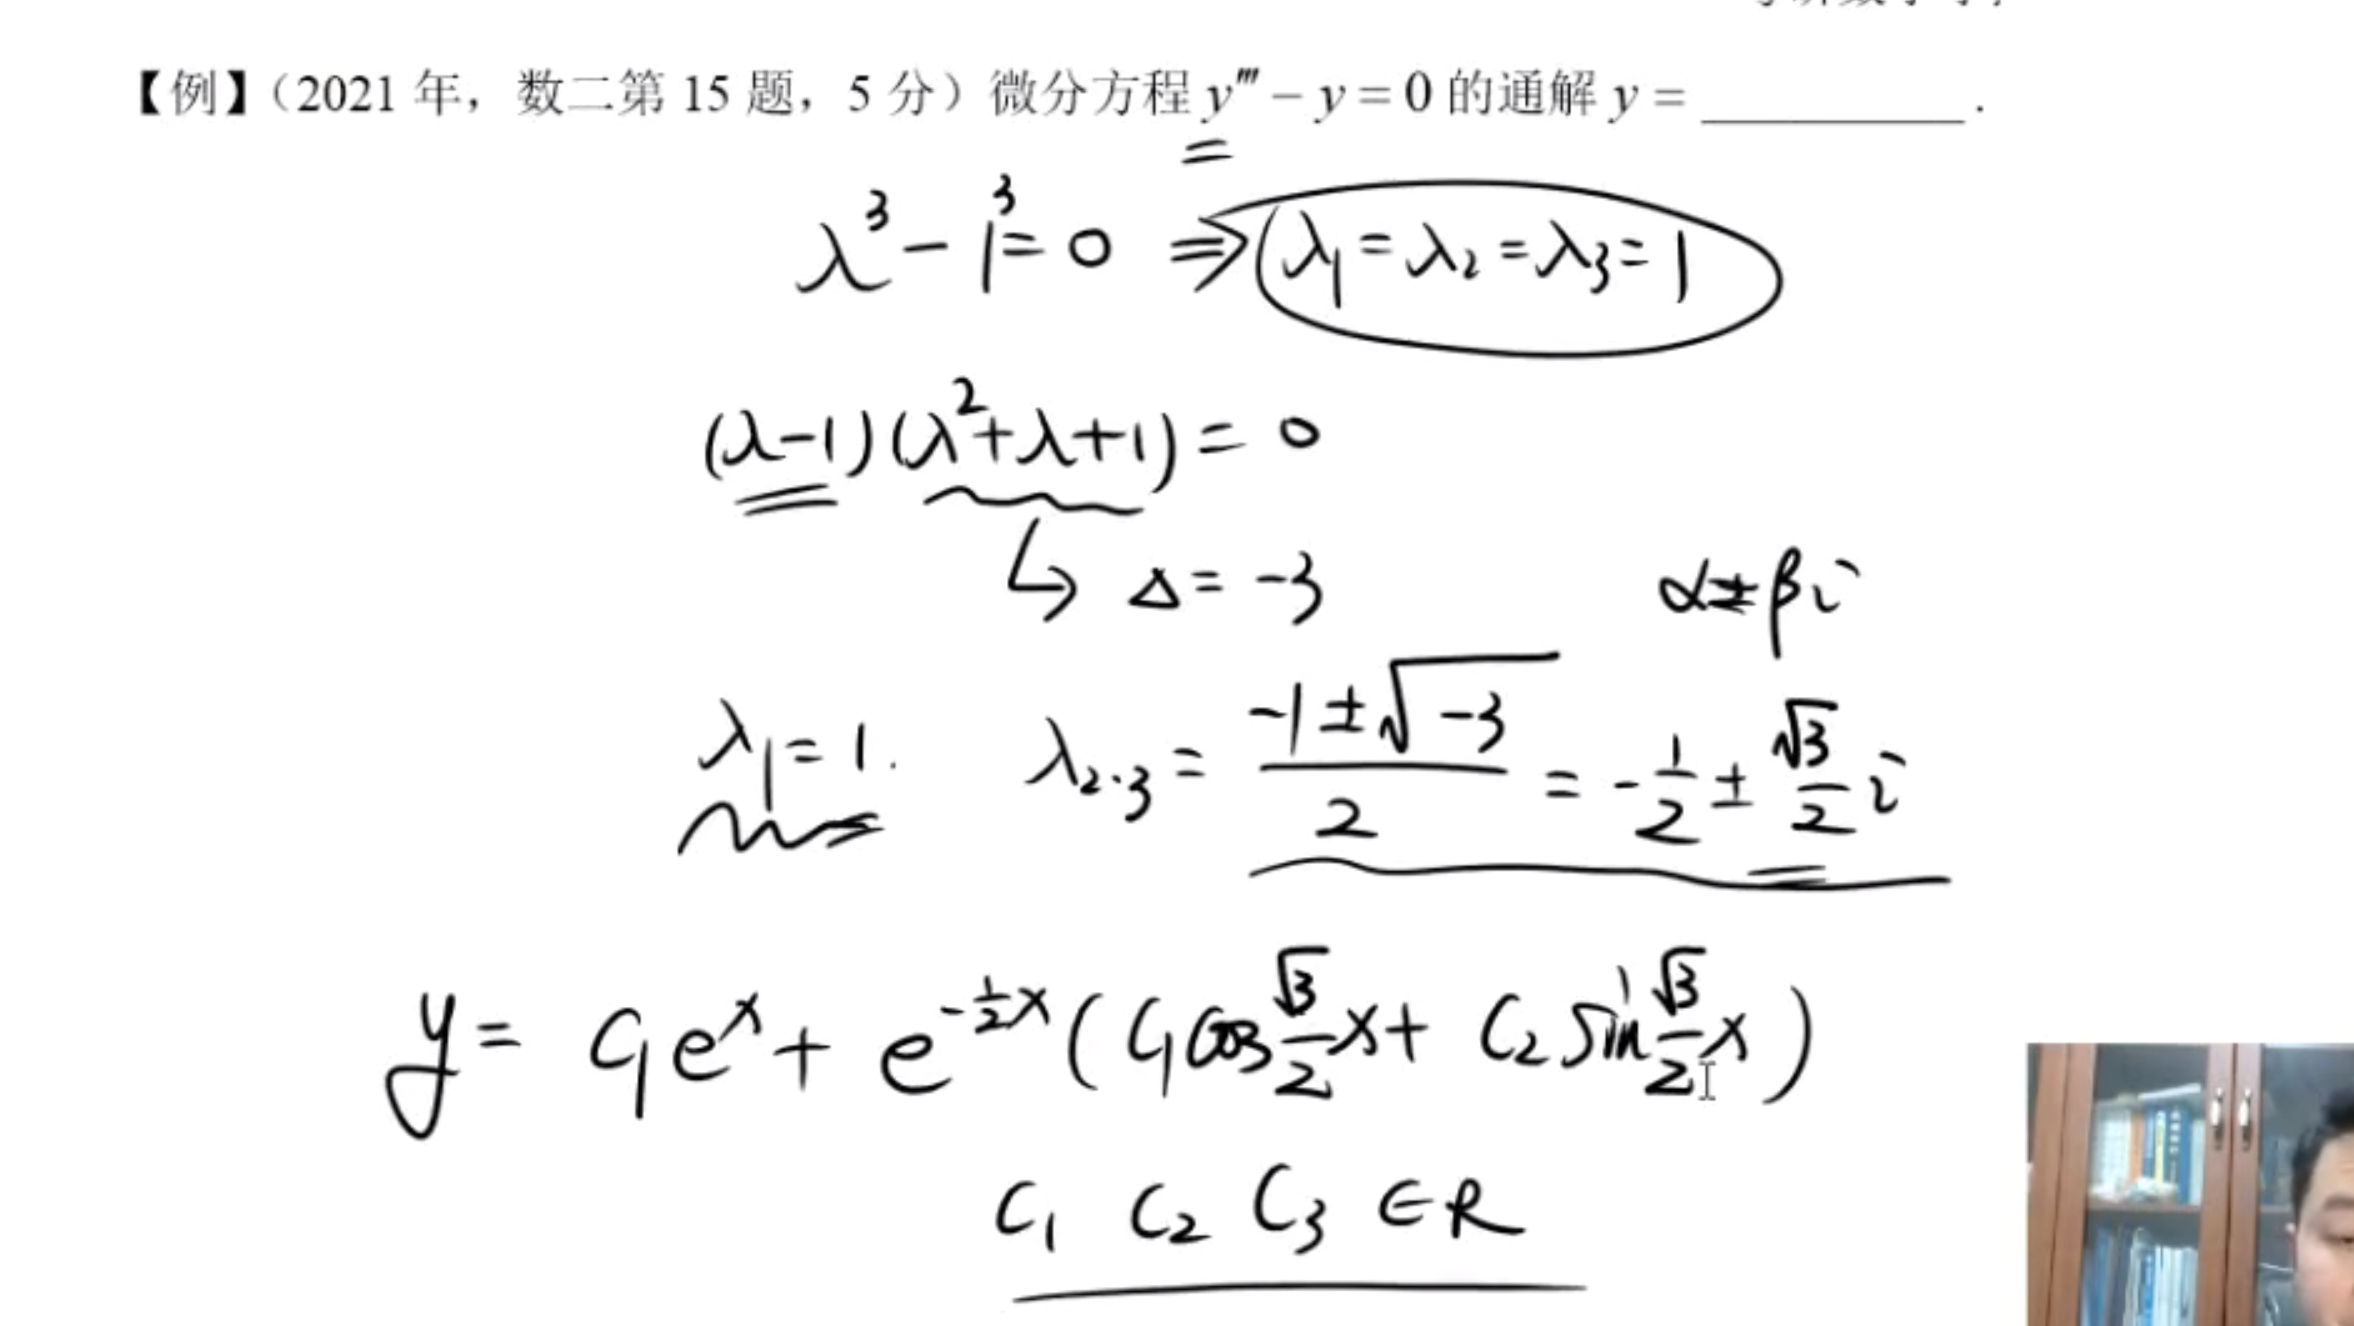 【例】（2021 年，数二第 15 题，5 分）微分方程 y''' − y = 0 的通解 y = ________ .
λ³ − 1³ = 0 ⇒ (λ₁ = λ₂ = λ₃ = 1
(λ−1)(λ²+λ+1) = 0
↳ Δ = −3
α ± βi
λ₁ = 1. λ₂.₃ = (−1 ± √−3)/2 = −1/2 ± √3/2 i
y = C₁eˣ + e^(−1/2 x) (C₁ cos √3/2 x + C₂ sin √3/2 x)
C₁ C₂ C₃ ∈ R